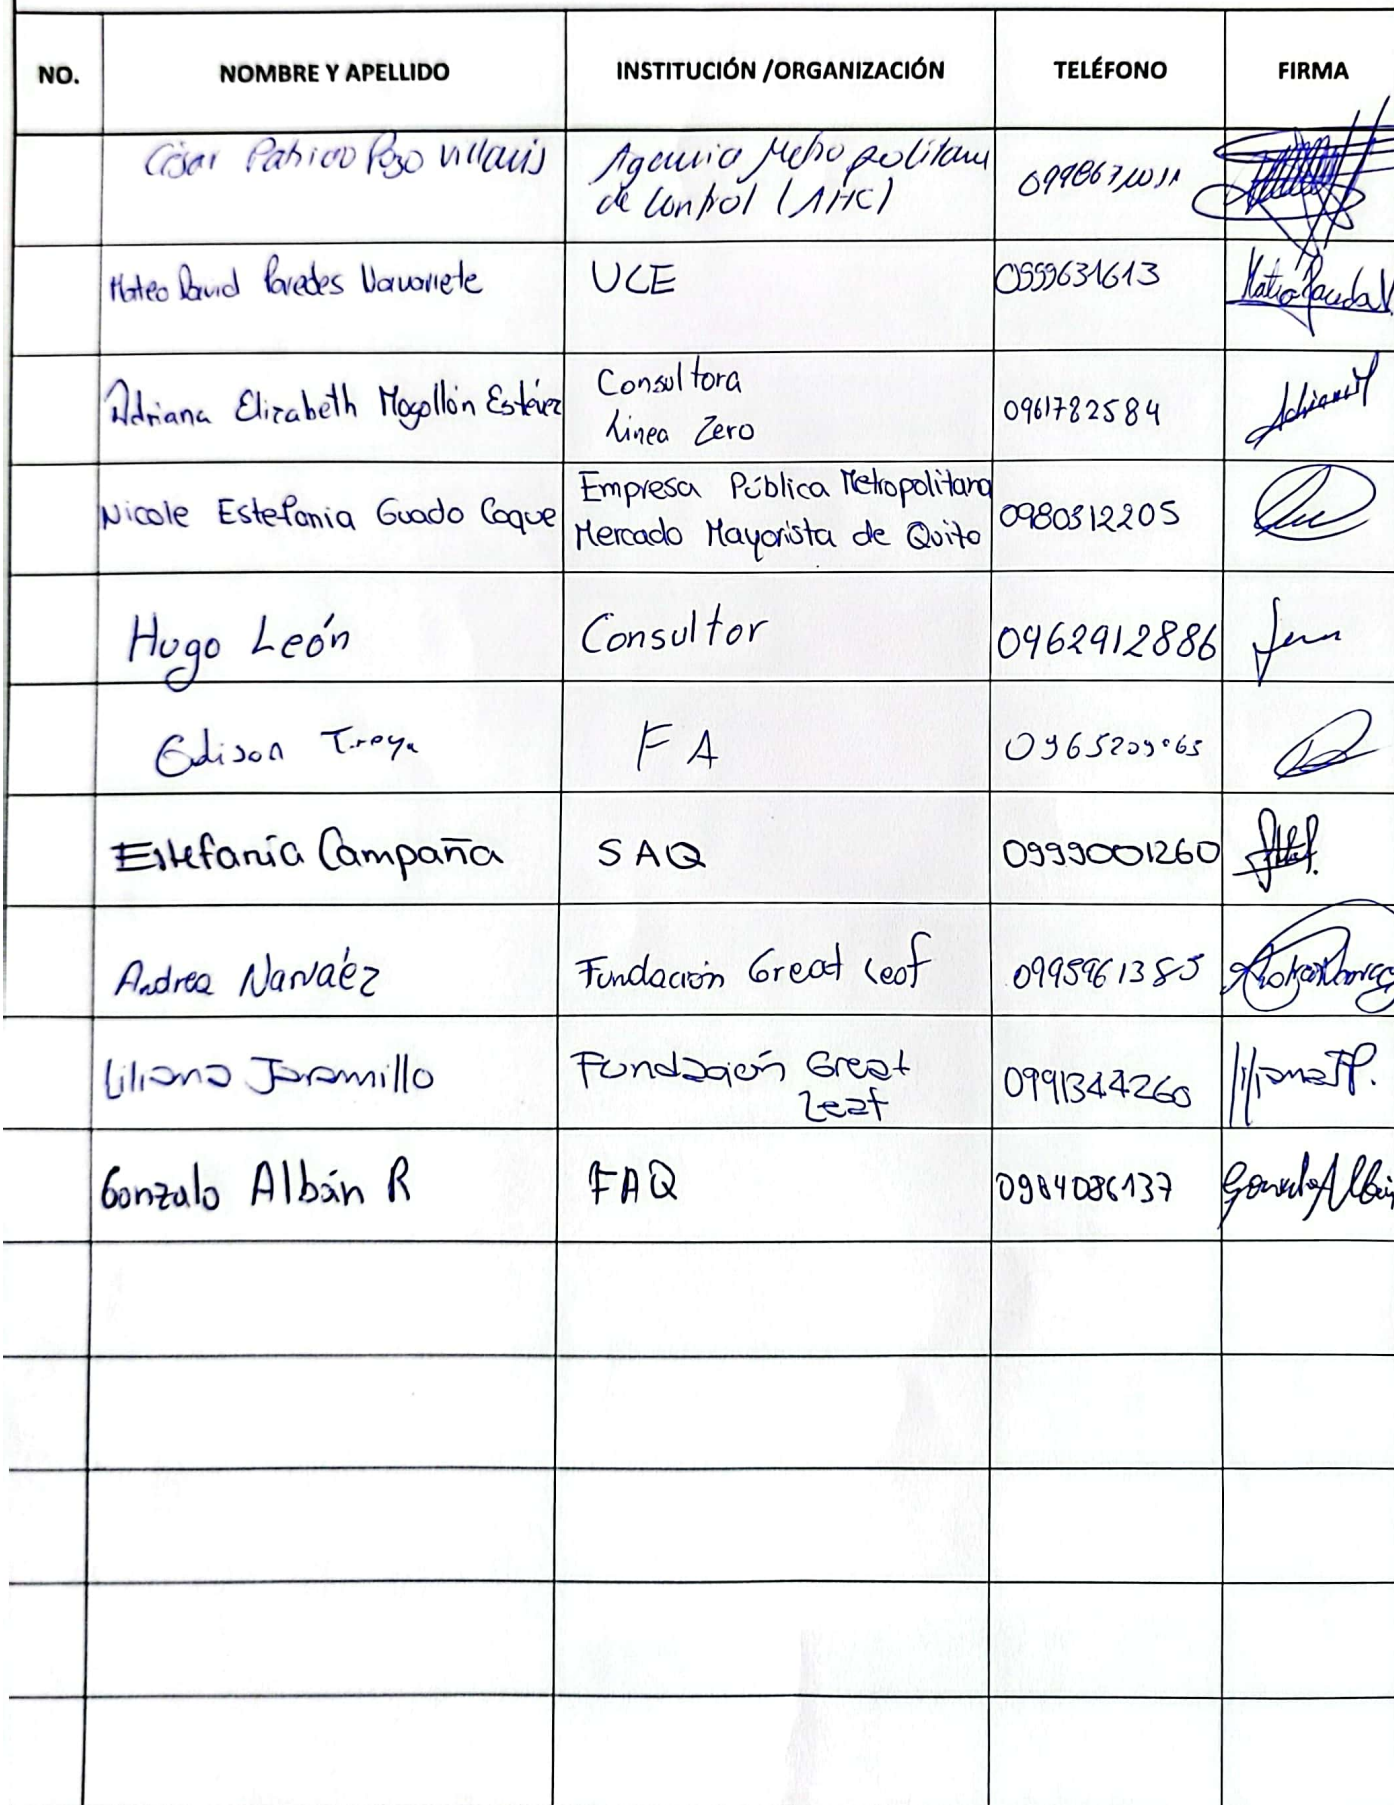 NO. NOMBRE Y APELLIDO INSTITUCIÓN /ORGANIZACIÓN TELÉFONO FIRMA
César Patricio Pozo Villacis Agencia Metropolitana
de Control (AMC)
Mateo David Paredes Navarrete UCE 0999631613
Adriana Elizabeth Mogollón Estévez Consultora
Linea Zero 0961782584
Nicole Estefania Guado Coque Empresa Pública Metropolitana
Mercado Mayorista de Quito 0980312205
Hugo León Consultor 0962912886
Edison Troya FA 0965209065
Estefanía Campaña SAQ 0999001260
Andrea Narváez Fundación Great Leaf 0995961385
Liliana Jaramillo Fundación Great
Leaf 0991344260
Gonzalo Albán R FAQ 0984086137